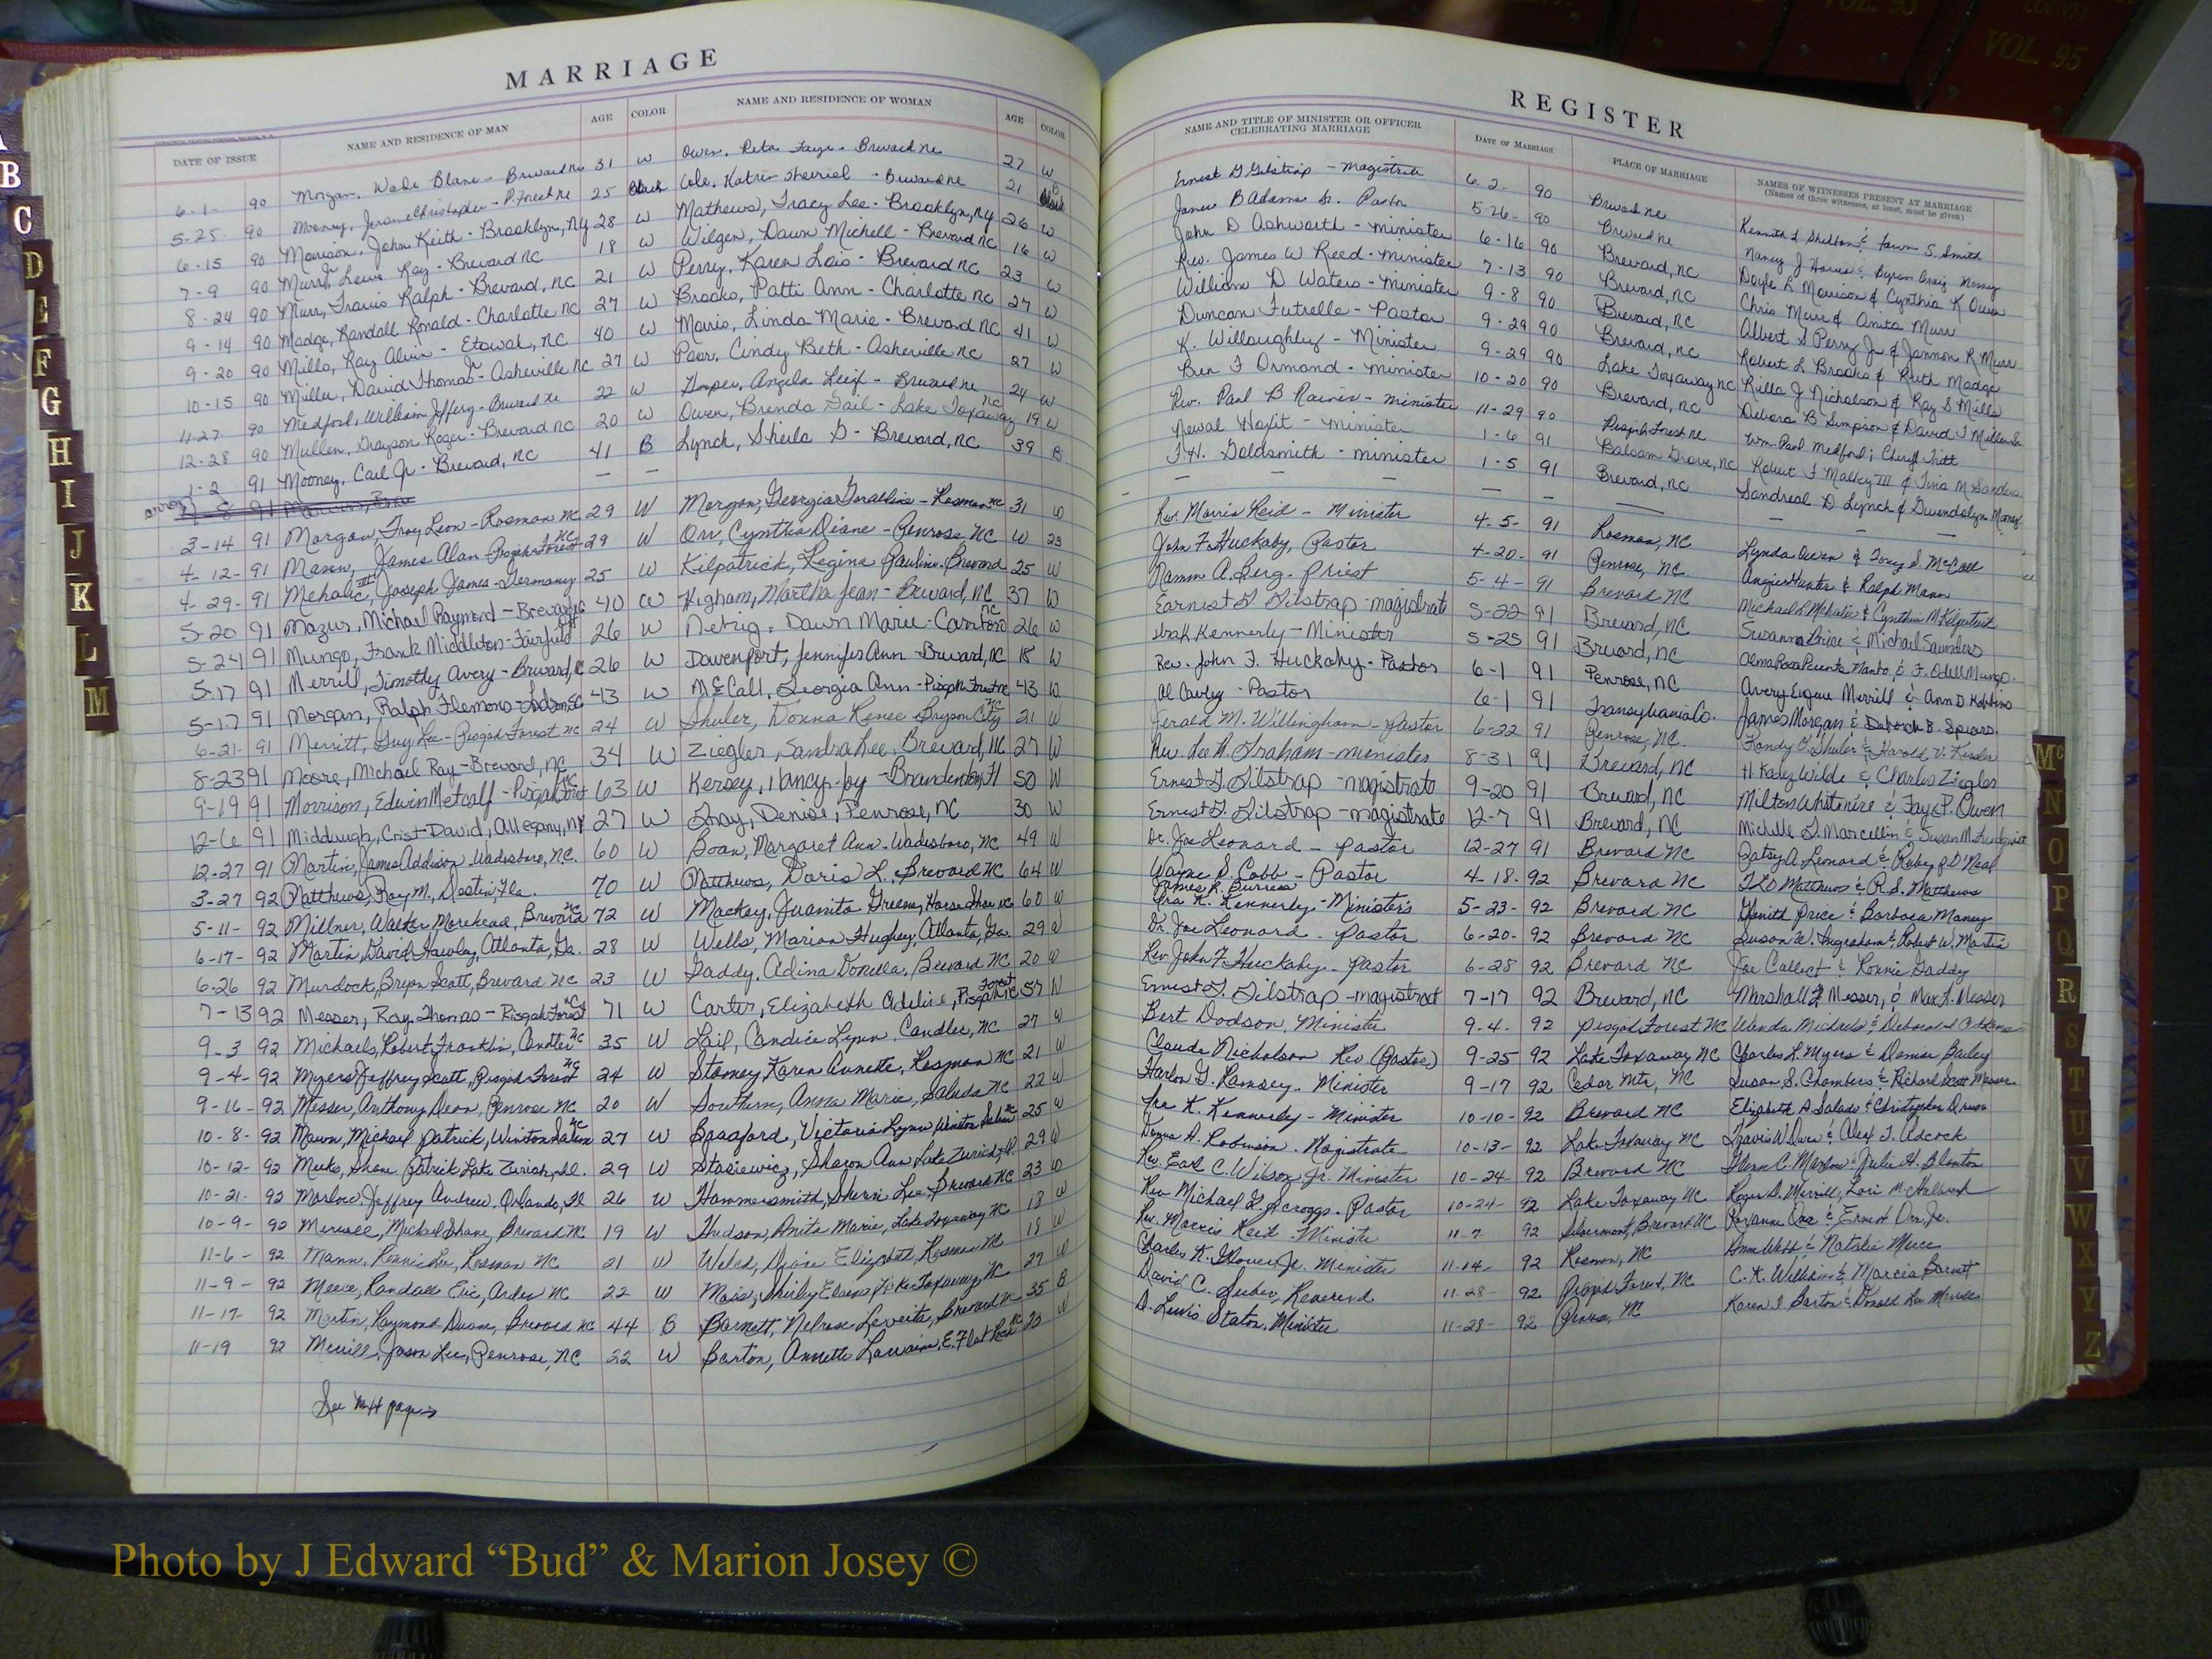 MARRIAGE
DATE OF ISSUE NAME AND RESIDENCE OF MAN AGE COLOR NAME AND RESIDENCE OF WOMAN AGE COLOR
6-1- 90 Morgan, Wade Blane - Brevard NC 31 W Owen, Reta Faye - Brevard NC 27 W
5-25- 90 Mooney, Jerome Christopher - P. Forest NC 25 Black Cole, Katrie Sherriel - Brevard NC 21
6-15 90 Morrison, John Keith - Brooklyn, NY 28 W Mathews, Tracy Lee - Brooklyn, NY 26 W
7-9 90 Murr, Lewis Ray - Brevard NC 18 W Wilgen, Dawn Michell - Brevard NC 16 W
8-24 90 Murr, Travis Ralph - Brevard, NC 21 W Perry, Karen Lois - Brevard NC 23 W
9-14 90 Madge, Randall Ronald - Charlotte NC 27 W Brooks, Patti Ann - Charlotte NC 27 W
9-20 90 Mills, Ray Alvin - Etowah, NC 40 W Morris, Linda Marie - Brevard NC 41 W
10-15 90 Miller, David Thomas Jr - Asheville NC 27 W Poor, Cindy Beth - Asheville NC 27 W
11-27 90 Medford, William Jeffery - Brevard NC 22 W Hooper, Angela Leigh - Brevard NC 24 W
12-28 90 Mullen, Grayson Roger - Brevard NC 20 W Owen, Brenda Gail - Lake Toxaway NC 19 W
1-2 91 Mooney, Carl Jr - Brevard, NC 41 B Lynch, Sheila D - Brevard, NC 39 B
error
3-14 91 Morgan, Troy Leon - Rosman NC 29 W Morgan, Georgia Geraldine - Rosman NC 31 W
4-12- 91 Mann, James Alan Pisgah Forest NC 29 W Orr, Cynthia Diane - Penrose, NC W 23
4-29- 91 Mehalic III, Joseph James - Germany 25 W Kilpatrick, Regina Pauline, Brevard 25 W
5-20 91 Mazur, Michael Raymond - Brevard NC 40 W Higham, Martha Jean - Brevard, NC 37 W
5-24 91 Mungo, Frank Middleton - Fairfield 26 W Netrig, Dawn Marie - Canton NC 26 W
5-17 91 Merrill, Timothy Avery - Brevard, NC 26 W Davenport, Jennifer Ann - Brevard, NC 18 W
5-17 91 Morgan, Ralph Flemons - SC 43 W McCall, Georgia Ann - Pisgah Forest NC 43 W
6-21- 91 Merritt, Guy Lee - Pisgah Forest NC 24 W Shuler, Donna Renee Bryson City NC 21 W
8-23 91 Moore, Michael Ray - Brevard, NC 34 W Ziegler, Sandra Lee, Brevard, NC 27 W
9-19 91 Morrison, Edwin Metcalf - Pisgah Forest NC 63 W Kersey, Nancy Joy - Brandenton, Fl 50 W
12-6 91 Middaugh, Crist David, Allegany, NY 27 W Gray, Denise, Penrose, NC 30 W
12-27 91 Martin, James Addison, Wadesboro, NC. 60 W Boan, Margaret Ann. Wadesboro, NC 49 W
3-27 92 Matthews, Roy M., Destin, Fla. 70 W Matthews, Doris L., Brevard NC 64 W
5-11- 92 Millner, Walter Morehead, Brevard NC 72 W Mackey, Juanita Greene, Horse Shoe NC 60 W
6-17- 92 Martin, David Hawley, Atlanta, Ga. 28 W Wells, Marian Hughey, Atlanta, Ga. 29 W
6-26 92 Murdock, Bryan Scott, Brevard NC 23 W Gaddy, Adina Donella, Brevard NC 20 W
7-13 92 Messer, Ray Thomas - Pisgah Forest NC 71 W Carter, Elizabeth Adeline, Pisgah Forest NC 57 W
9-3 92 Michaels, Robert Franklin, Candler NC 35 W Lail, Candice Lynn, Candler, NC 27 W
9-4- 92 Myers, Jeffrey Scott, Pisgah Forest NC 24 W Stamey, Karen Annette, Rosman NC 21 W
9-16- 92 Messer, Anthony Dean, Penrose NC 20 W Southern, Anna Marie, Saluda NC 22 W
10-8- 92 Mawn, Michael Patrick, Winston Salem NC 27 W Bradford, Victoria Lynn, Winston Salem NC 25 W
10-12- 92 Meeks, Shane Patrick Lake Zurich, Il. 29 W Stasiewicz, Sharon Ann Lake Zurich, Il. 29 W
10-21- 92 Marlow, Jeffrey Andrew, Orlando, Fl 26 W Hammersmith, Sherri Lee Brevard NC 23 W
10-9- 92 Merrill, Michael Shane, Brevard NC 19 W Hudson, Anita Marie, Lake Toxaway NC 18 W
11-6- 92 Mann, Ronnie Lee, Rosman NC 21 W Welch, Elizabeth, Rosman NC 18 W
11-9- 92 Meece, Randall Eric, Arden NC 22 W Moss, Shirley Elaine, Lake Toxaway NC 27 W
11-17- 92 Martin, Raymond Duane, Brevard NC 44 B Barnett, Nelrose Laverta, Brevard NC 35 B
11-19 92 Merrill, Jason Lee, Penrose, NC 22 W Barton, Annette Lorraine, E. Flat Rock NC 23 W
See next page →
REGISTER
NAME AND TITLE OF MINISTER OR OFFICER CELEBRATING MARRIAGE DATE OF MARRIAGE PLACE OF MARRIAGE NAMES OF WITNESSES PRESENT AT MARRIAGE
(Names of three witnesses, at least, must be given)
Ernest G Gilstrap - Magistrate 6-2- 90 Brevard NC Kenneth L Shelton & Fawn S. Smith
James B Adams Sr. Pastor 5-26- 90 Brevard NC Nancy J Harris & Byron Craig Mooney
John D Ashworth - minister 6-16 90 Brevard, NC Doyle R Morrison & Cynthia K Owen
Rev. James W Reed - minister 7-13 90 Brevard, NC Chris Murr & Anita Murr
William D Waters - minister 9-8 90 Brevard, NC Albert S Perry Jr & Jannon R Murr
Duncan Futrelle - Pastor 9-29 90 Brevard, NC Robert L Brooks & Ruth Madge
K. Willoughby - Minister 9-29 90 Lake Toxaway NC Rilla J Nicholson & Ray S Mills
Ben F Ormand - minister 10-20 90 Brevard, NC Debora B Simpson & David T Miller Sr
Rev. Paul B Rainer - minister 11-29 90 Pisgah Forest NC Wm. Paul Medford; Cheryl Tritt
Newal - minister 1-6 91 Balsam Grove, NC Robert F Malley III & Tina M Sanders
F.H. Goldsmith - minister 1-5 91 Brevard, NC Sandreal D Lynch & Gwendolyn Mooney
Rev. Morris Reid - Minister 4-5- 91 Rosman, NC Lynda Owen & Tony S. McCall
John F. Huckaby, Pastor 4-20- 91 Penrose, NC. Angie Hunter & Ralph Mann
A. Berg - Priest 5-4- 91 Brevard NC Michael L Mehalic & Cynthia M Kilpatrick
Earnest G. Gilstrap - magistrate 5-22 91 Brevard, NC Suzanna Price & Michael Saunders
Ira K. Kennerly - Minister 5-25 91 Brevard, NC & F. Odell Mungo.
Rev. John F. Huckaby - Pastor 6-1 91 Penrose, NC Avery Eugene Merrill & Ann D. Robbins
Al Cauley - Pastor 6-1 91 Transylvania Co. James Morgan & Deborah B. Spears
Gerald M. Willingham - Pastor 6-22 91 Penrose, NC. Randy C. Shuler & Harold V. Kesler
Rev. Lee R. Graham - minister 8-31 91 Brevard, NC H. Katey Wilde & Charles Ziegler
Ernest G. Gilstrap - magistrate 9-20 91 Brevard, NC Milton Whitmire & Faye P. Owen
Ernest G. Gilstrap - magistrate 12-7 91 Brevard, NC Michelle G. Marcellin & Susan M.
Dr. Joe Leonard - pastor 12-27 91 Brevard NC Patsy A. Leonard & Ruby J. O'Neal
Wayne S. Cobb - Pastor 4-18- 92 Brevard NC Matthews & R.S. Matthews
James R. Burress
Ira K. Kennerly - Ministers 5-23- 92 Brevard NC Price & Barbara Maney
Dr. Joe Leonard - pastor 6-20- 92 Brevard NC Susan W. Ingraham & Robert W. Martin
Rev John F. Huckaby - Pastor 6-28 92 Brevard NC Joe Callect & Ronnie Gaddy
Ernest G. Gilstrap - magistrate 7-17 92 Brevard, NC Marshall F. Messer, & Max F. Messer
Bert Dodson, Minister 9-4- 92 Pisgah Forest NC Wanda Michaels & Deborah
Claude Nicholson Rev (Pastor) 9-25 92 Lake Toxaway NC Charles L. Myers & Denise Bailey
Harlon G. Ramsey - Minister 9-17 92 Cedar Mtn, NC Susan S. Chambers & Richard Scott Messer
Ira K. Kennerly - Minister 10-10- 92 Brevard NC Elizabeth A Salade & Christopher
Donna A. Robinson - Magistrate 10-13- 92 Lake Toxaway NC Travis W. Owen & Alex T. Adcock
Rev. Earl C. Wilson Jr. Minister 10-24 92 Brevard NC Glenn C. Marlow & Julie H. Blanton
Rev Michael L. Scroggs - Pastor 10-24- 92 Lake Toxaway NC Roger D. Merrill, Lori M. Hallwood
Rev. Morris Reid - Minister 11-7 92 Silvermont, Brevard NC Roxanne Orr & Ernest Orr, Jr.
Charles K. Glover Jr. Minister 11-14- 92 Rosman, NC Anne Webb & Natalie Meece
David C. Suber, Reverend 11-28- 92 Pisgah Forest, NC C. K. Williams & Marcia Barnett
D. Lewis Staton, Minister 11-28- 92 Penrose, NC Karen I Barton & Donald Lee Merrill
B
C
D
E
F
G
H
I
J
K
L
M
Mc
N
O
P
Q
R
S
T
U
V
W
X
Y
Z
VOL. 93
COUNTY
VOL. 95
Photo by J Edward “Bud” & Marion Josey ©